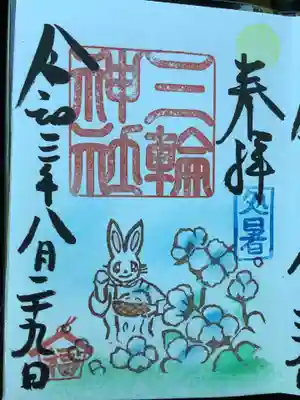 奉拝
処暑。
三輪
神社
令和三年八月二十九日
福